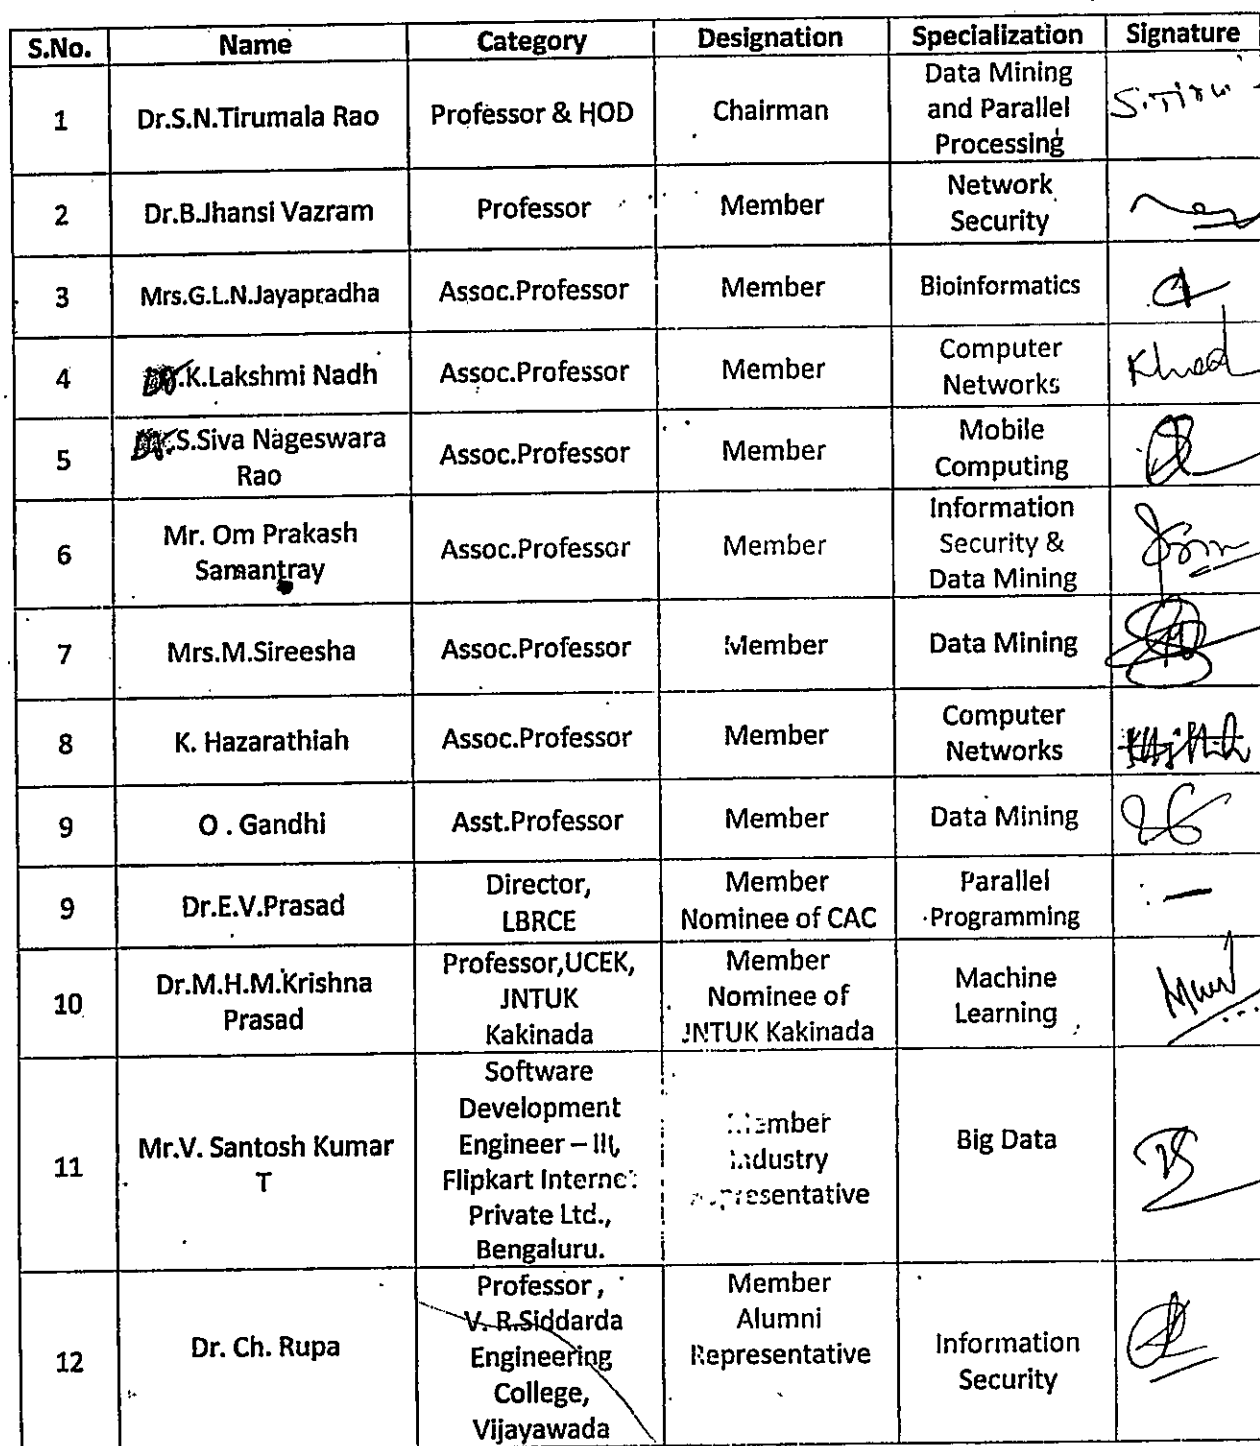 S.No. Name Category Designation Specialization Signature
Data Mining
and Parallel
Processing
1 Dr.S.N.Tirumala Rao Professor & HOD Chairman
S.Tiru
2 Dr.B.Jhansi Vazram Professor Member
Network
Security
3 Mrs.G.L.N.Jayapradha Assoc.Professor Member Bioinformatics
4 .K.Lakshmi Nadh Assoc.Professor Member
Computer
Networks
5
S.Siva Nageswara
Rao
Assoc.Professor Member
Mobile
Computing
6
Mr. Om Prakash
Samantray
Assoc.Professor Member
Information
Security &
Data Mining
7 Mrs.M.Sireesha Assoc.Professor Member Data Mining
8 K. Hazarathiah Assoc.Professor Member
Computer
Networks
9 O . Gandhi Asst.Professor Member Data Mining
9 Dr.E.V.Prasad
Director,
LBRCE
Member
Nominee of CAC
Parallel
Programming
10
Dr.M.H.M.Krishna
Prasad
Professor,UCEK,
JNTUK
Kakinada
Member
Nominee of
JNTUK Kakinada
Machine
Learning
11
Mr.V. Santosh Kumar
T
Software
Development
Engineer – III,
Flipkart Internet
Private Ltd.,
Bengaluru.
Member
Industry
Representative
Big Data
12 Dr. Ch. Rupa
Professor ,
V. R.Siddarda
Engineering
College,
Vijayawada
Member
Alumni
Representative
Information
Security